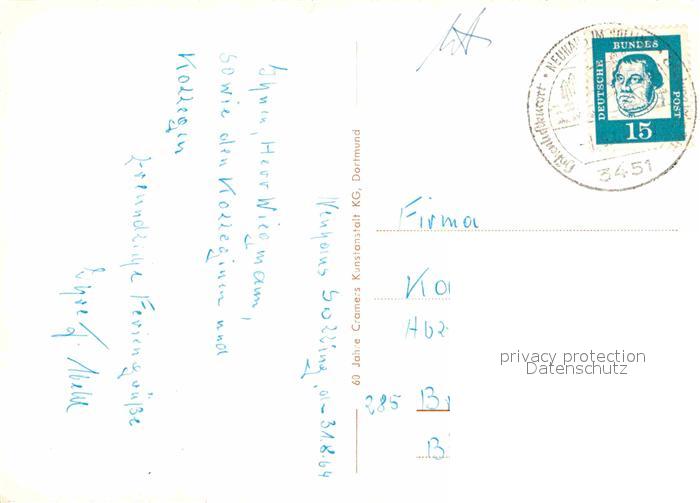 Neuhaus Solling, d. 31.8.64
Ihnen, Herr Wiegmann,
sowie den Kolleginnen und
Kollegen
freundliche Feriengrüße
Ihre
60 Jahre Cramers Kunstanstalt KG, Dortmund
NEUHAUS IM
Höhenluftkurort
3451
DEUTSCHE
BUNDES
POST
15
Firma
Ko
285 Br
privacy protection
Datenschutz